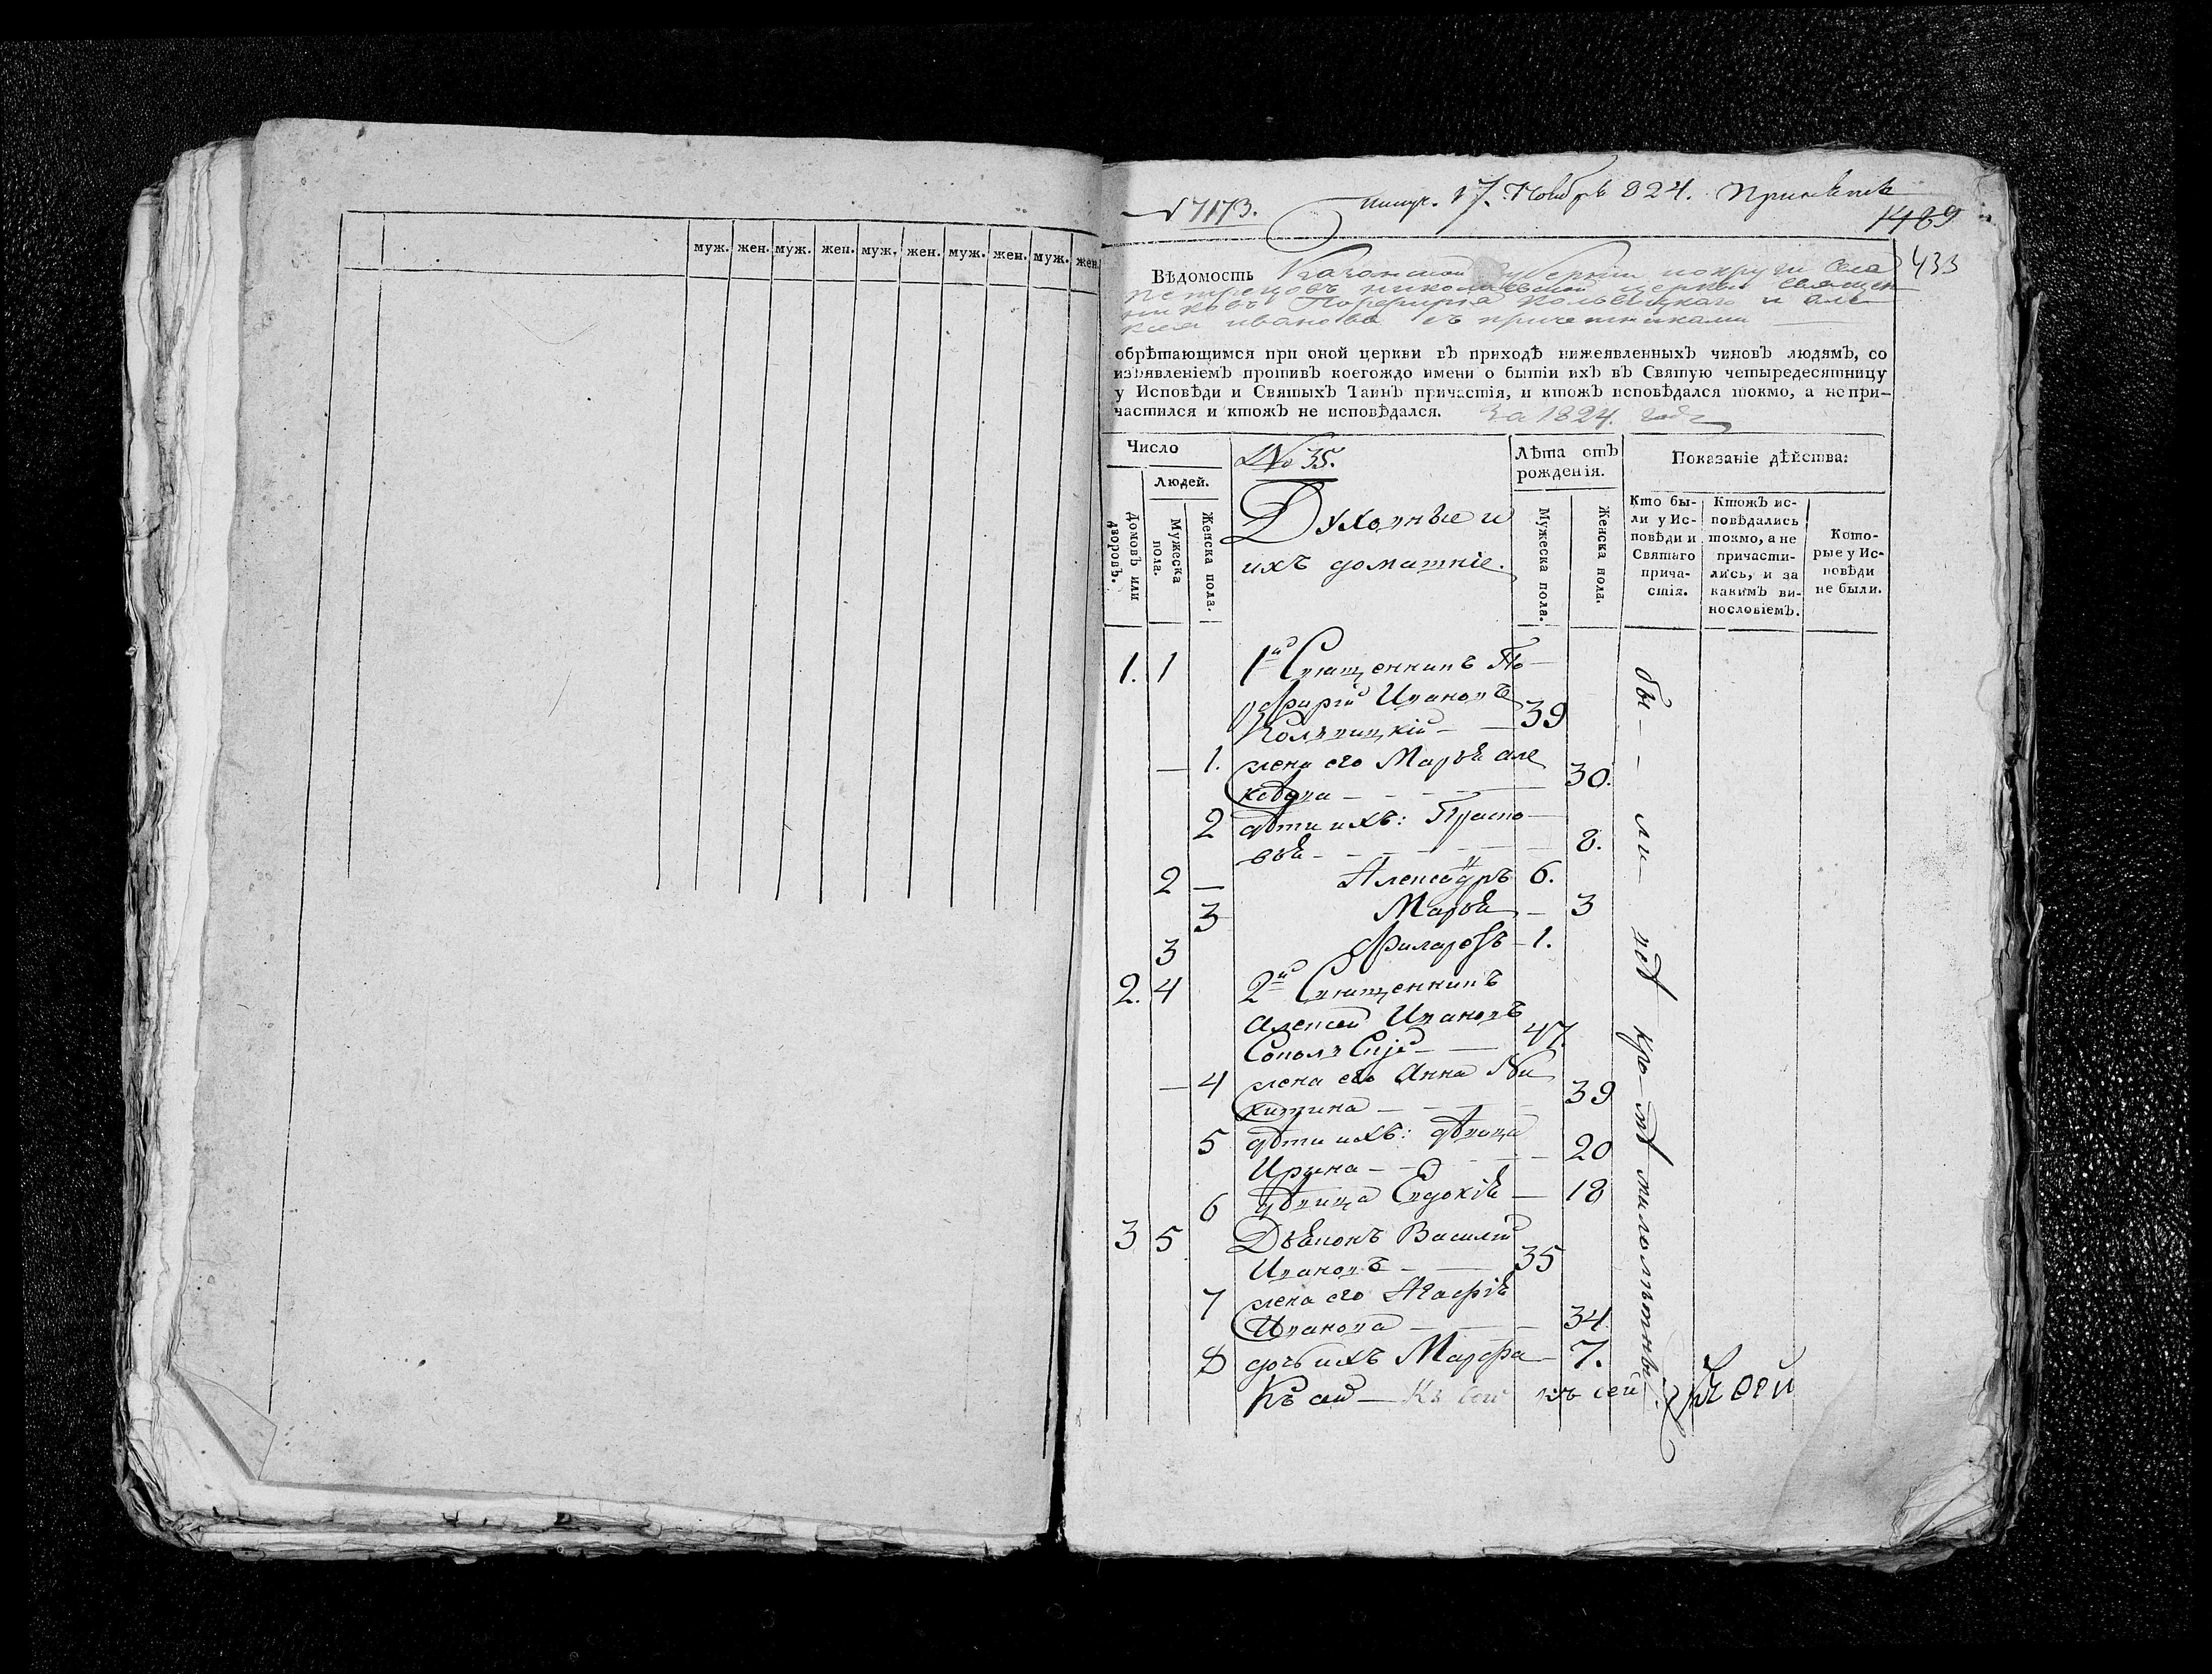 муж. жен. муж. жен. муж. жен. муж. жен. муж. жен.
№ 7173. 17. Ноября 824.
1489
433
Вѣдомость Казанской губерніи округи Села
Николаевской церкви священ
никовъ Порфирія Кольвицкаго и Але
ксея иванова съ причетниками
обрѣтающимся при оной церкви въ приходѣ нижеявленныхъ чиновъ людямъ, со
изъявленіемъ противъ коегождо имени о бытіи ихъ въ Святую четыредесятницу
у Исповѣди и Святыхъ Таинъ причастія, и ктожъ исповѣдался токмо, а непри-
частился и ктожъ не исповѣдался. За 1824. годъ
Число
Людей.
Домовъ или дворовъ.
Мужеска пола.
Женска пола.
№ 35.
Духовные и
ихъ домашніе.
Лѣта отъ
рожденія.
Мужеска пола.
Женска пола.
Показаніе дѣйства:
Кто бы-
ли у Ис-
повѣди и
Святаго
прича-
стія.
Ктожъ ис-
повѣдались
токмо, а не
причасти-
лись, и за
какимъ ви-
нословіемъ.
Кото-
рые у Ис-
повѣди
не были.
1. 1 1й Священникъ По
рфирій Ивановъ
Кольвицкій — 39
— 1. жена его Марья але
ксѣева — 30.
2 дѣти ихъ: Праско
вья — 8.
2 — Александръ 6.
3 Марья — 3
3 Филаретъ — 1.
2. 4 2й Священникъ
Алексей Ивановъ
47.
— 4 жена его Анна Ни
китина — 39
5 дѣти ихъ: дѣвица
Ирина — 20
6 дѣвица Евдокія — 18
3 5 Дьяконъ Василій
Ивановъ — 35
7 жена его Агафія
Иванова — 34
8 дочь ихъ Марфа — 7.
бы — ли всѣ кромѣ малолѣтныхъ
Къ сей — Къ сей къ сей Къ сей